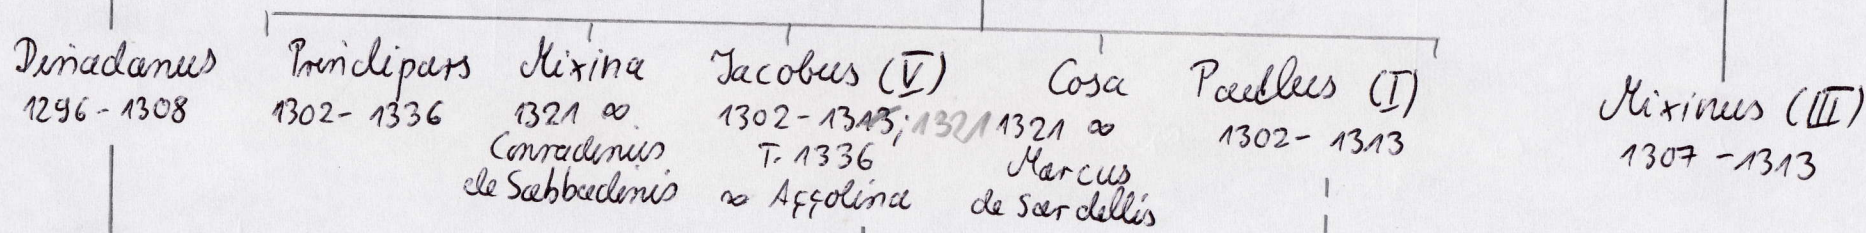 Dinadanus
1296 - 1308
Principars
1302 - 1336
Mixina
1321 ∞
Conradinus
de Sabbadinis
Jacobus (V)
1302 - 1313; 1321
T. 1336
∞ Aççolina
Cosa
1321 ∞
Marcus
de Sardellis
Paulus (I)
1302 - 1313
Mixinus (III)
1307 - 1313